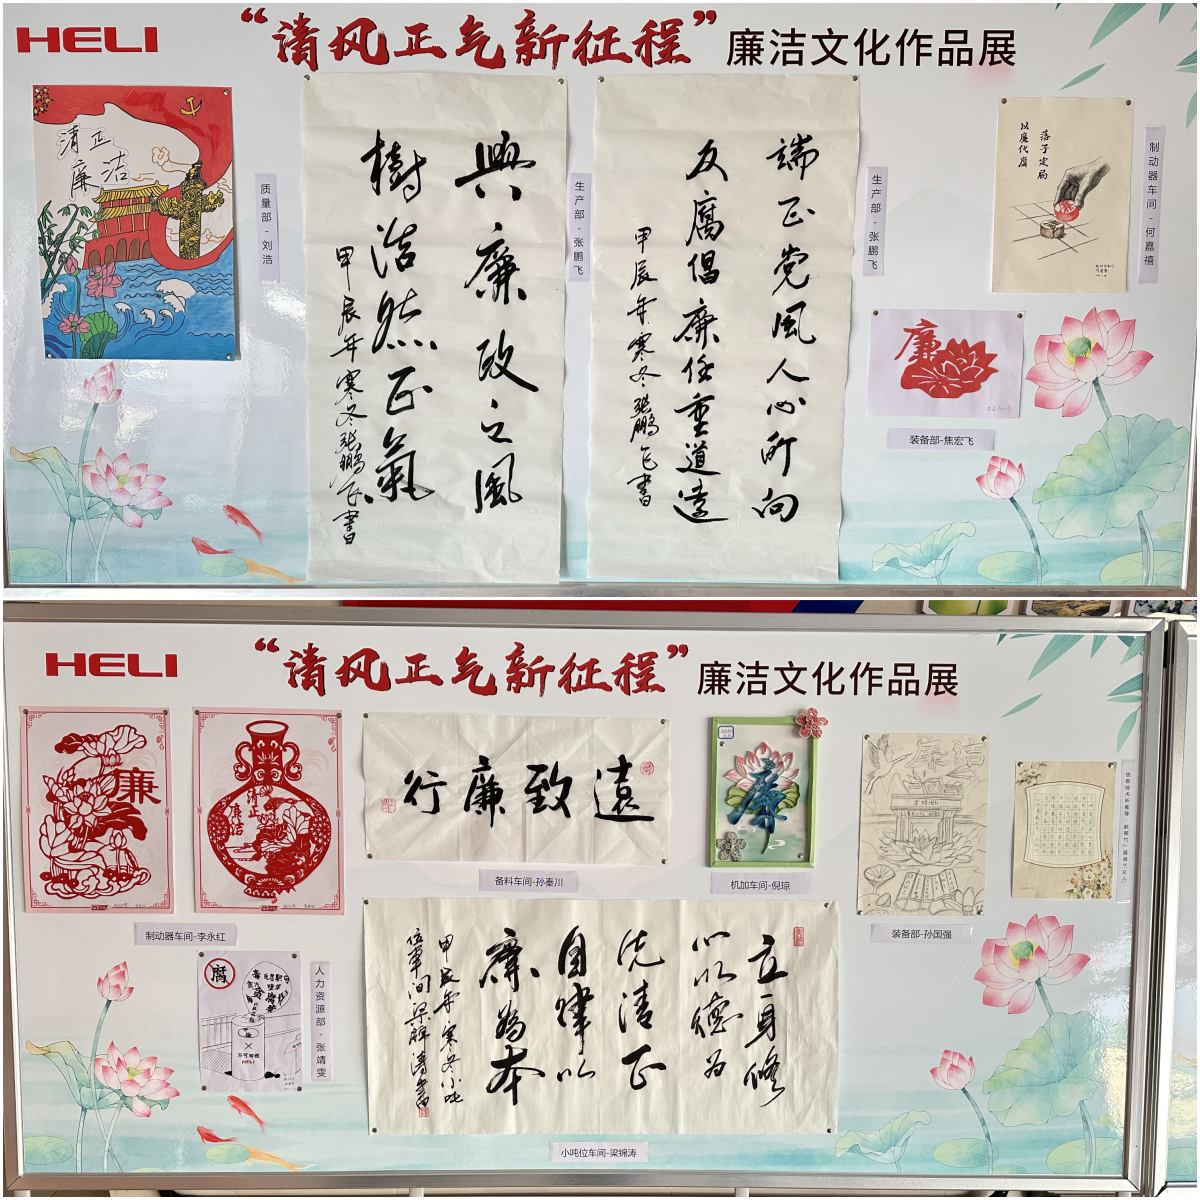 HELI
“清风正气新征程”廉洁文化作品展
清正
廉洁
质量部-刘浩
興廉政之風
樹浩然正氣
甲辰年寒冬张鹏飞書
生产部-张鹏飞
端正党风人心所向
反腐倡廉任重道遠
甲辰年寒冬张鹏飞書
生产部-张鹏飞
落子定局
以廉代腐
制动器车间-何嘉禧
廉
装备部-焦宏飞
HELI
“清风正气新征程”廉洁文化作品展
廉
清正
廉洁
制动器车间-李永红
遠致廉行
备料车间-孙秦川
廉
机加车间-倪琼
廉洁
装备部-孙国强
腐
贪
不可回收
HELI
人力资源部-张靖雯
立身修
心以德为
先清正
自律以
廉為本
甲辰年寒冬小吨
位車间梁锦涛書
小吨位车间-梁锦涛